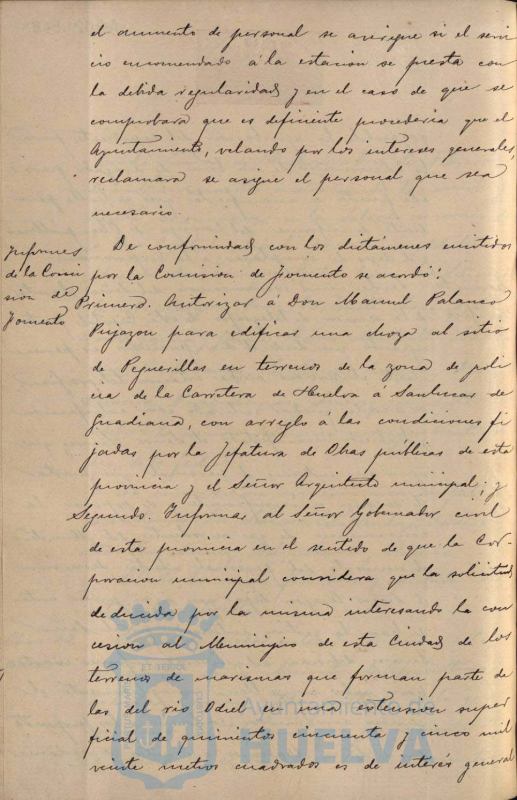 el aumento de personal se averigue si el servi
cio encomendado á la estacion se presta con
la debida regularidad y en el caso de que se
comprobara que es deficiente procederia que el
Ayuntamiento, velando por los intereses generales,
reclamara se asigne el personal que sea
necesario.
Informes
de la Comi
sion de
Fomento
De conformidad con los dictámenes emitidos
por la Comision de Fomento se acordó:
Primero. Autorizar á Don Manuel Palanco
Pujazon para edificar una choza al sitio
de Peguerillas en terrenos de la zona de poli
cia de la Carretera de Huelva á Sanlucar de
Guadiana, con arreglo á las condiciones fi
jadas por la Jefatura de Obras públicas de esta
provincia y el Señor Arquitecto municipal; y
Segundo. Informar al Señor Gobernador civil
de esta provincia en el sentido de que la Cor-
poracion municipal considera que la solicitud
deducida por la misma interesando la con
cesion al Municipio de esta Ciudad de los
terrenos de marismas que forman parte de
las del rio Odiel en una extension super
ficial de quinientos cincuenta y cinco mil
veinte metros cuadrados es de interés general
Ayuntamiento de
HUELVA